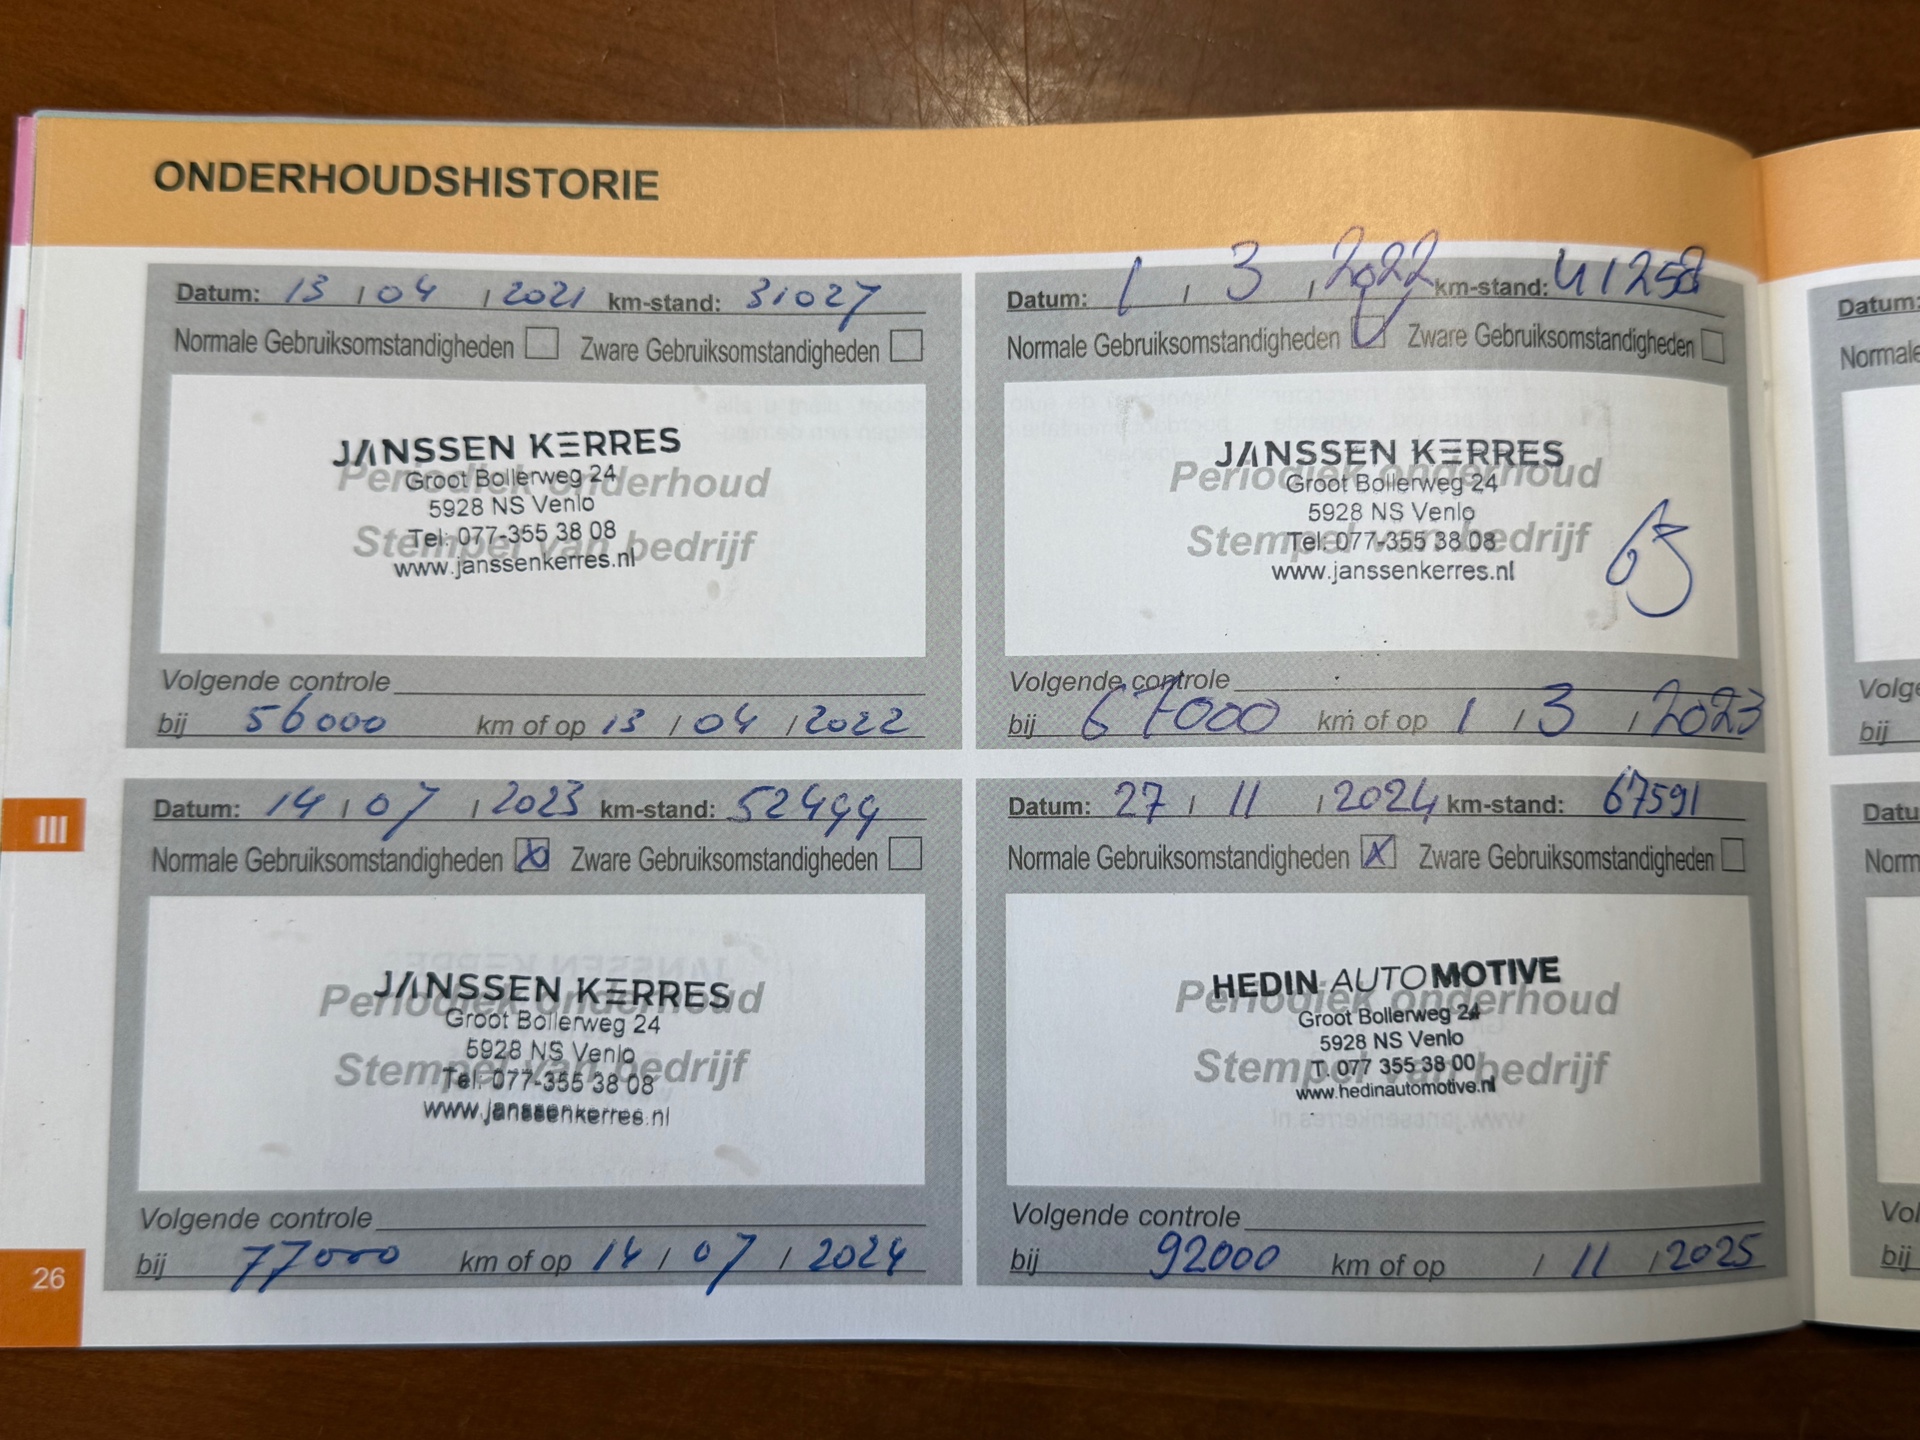 ONDERHOUDSHISTORIE
Datum: 13 / 04 / 2021 km-stand: 31027
Normale Gebruiksomstandigheden Zware Gebruiksomstandigheden
Periodiek onderhoud
Stempel van bedrijf
JANSSEN KERRES
Groot Bollerweg 24
5928 NS Venlo
Tel: 077-355 38 08
www.janssenkerres.nl
Volgende controle
bij 56000 km of op 13 / 04 / 2022
Datum: 1 / 3 / 2022 km-stand: 41258
Normale Gebruiksomstandigheden Zware Gebruiksomstandigheden
Periodiek onderhoud
Stempel van bedrijf
JANSSEN KERRES
Groot Bollerweg 24
5928 NS Venlo
Tel: 077-355 38 08
www.janssenkerres.nl
Volgende controle
bij 67000 km of op 1 / 3 / 2023
Datum: 14 / 07 / 2023 km-stand: 52499
Normale Gebruiksomstandigheden X Zware Gebruiksomstandigheden
Periodiek onderhoud
Stempel van bedrijf
JANSSEN KERRES
Groot Bollerweg 24
5928 NS Venlo
Tel: 077-355 38 08
www.janssenkerres.nl
Volgende controle
bij 77000 km of op 14 / 07 / 2024
Datum: 27 / 11 / 2024 km-stand: 67591
Normale Gebruiksomstandigheden X Zware Gebruiksomstandigheden
Periodiek onderhoud
Stempel van bedrijf
HEDIN AUTOMOTIVE
Groot Bollerweg 24
5928 NS Venlo
T. 077 355 38 00
www.hedinautomotive.nl
Volgende controle
bij 92000 km of op / 11 / 2025
III
26
Datum:
Normale
Volge
bij
Datu
Norm
Vol
bij